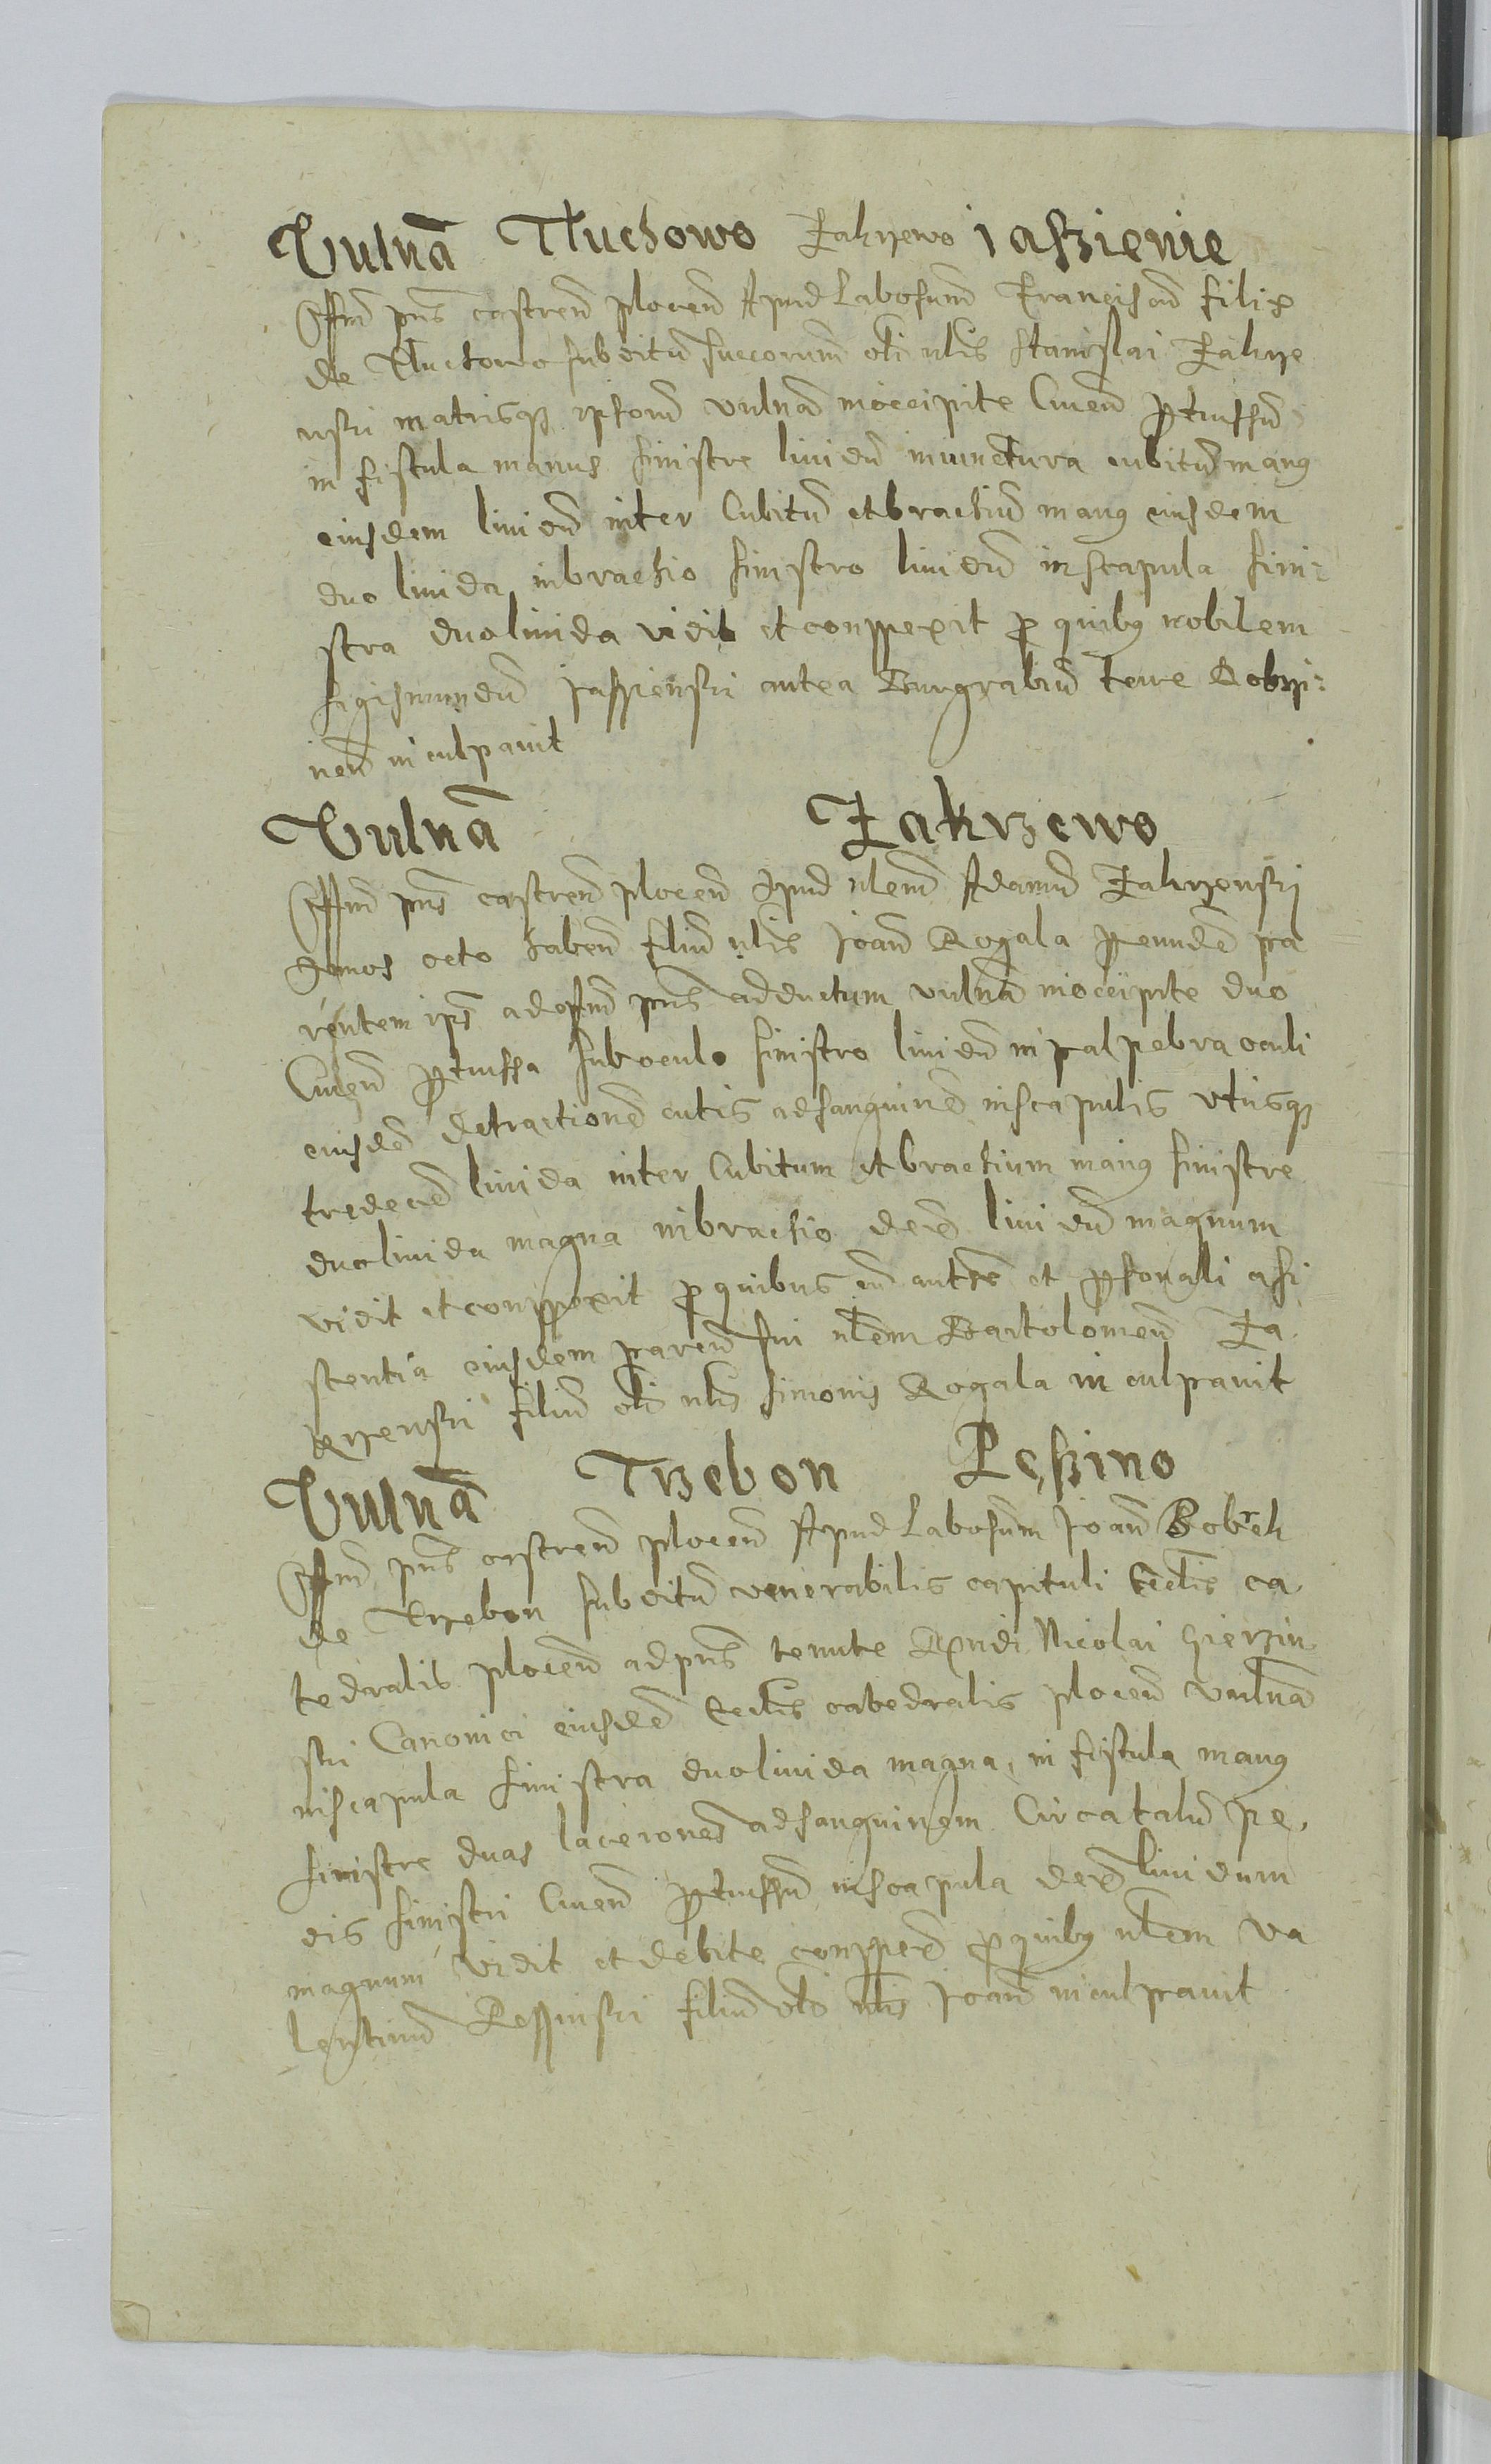 Vulnã Tluchowo Zakrzewo jaszienie
Offm̃ pñs castreñ ploceñ Apud Labosum Franciscũ filip
de Tluchowo subditũ succorum oĩ nlis Stanislai Zakrze
wski matrisq₃ ipsorũ vulnã inoccipite Cruen̄ ꝑcussũ
in fistula manus sinistre liuidũ iniunctura cubitũ man9
eiusdem liuidũ inter Cubitũ et brachiũ man9 eiusdem
duo liuida inbrachio sinistro liuidũ in scapula sini:
stra duo liuida vidit et conspexit ꝓ quib9 nobilem
Sigismundũ jasszienski antea Burgrabiũ terre Dobrzi:
neñ inculpauit
Vulnã Zakrzewo
Offm̃ pñs castreñ ploceñ Apud nlem̃ Adamũ Zakrzenskj
Annos octo habeñ filiũ nlis Joañ Rogala ꝑ eundẽ pa
rentem ips9 ad offm̃ pñs adductum vulnã inoccipite duo
Cruen̄ ꝑcussa sub oculo sinistro liuidũ in palpebra oculi
eiusdẽ detractionẽ cutis ad sanguinẽ inscapulis vtrisq₃
tredecẽ liuida inter Cubitum et brachium man9 sinistre
duo liuida magna inbrachio dexõ liuidũ magnum
vidit et conspexit ꝓ quibus cũ aut̃te et ꝑsonali assi
stentia eiusdem pareñ sui nlem Bartolomeũ Za
krzenski filiũ oĩ nlis Simonis Rogala inculpauit
Vulnã Trzebon Reszino
Offm̃ pñs castreñ ploceñ Apud Labosum Joañ Bobrek
de Trzebon subditũ venerabilis capituli Ecclie ca
tedralis ploceñ ad pñs tenute Rx̃ndi Nicolai Gierzin
ski Canonici eiusdẽ Ecclie catedralis ploceñ vulnã
inscapula sinistra duo liuida magna, in fistula man9
sinistre duas laceroneš ad sanguinem Circa talũ pe,
dis sinistri Cruen̄ ꝑcussũ inscapula dexõ liuidum
magnum vidit et debite conspexit ꝓ quib9 nlem Va
lentinũ Resszinski filiũ oĩ nlis Joañ inculpauit